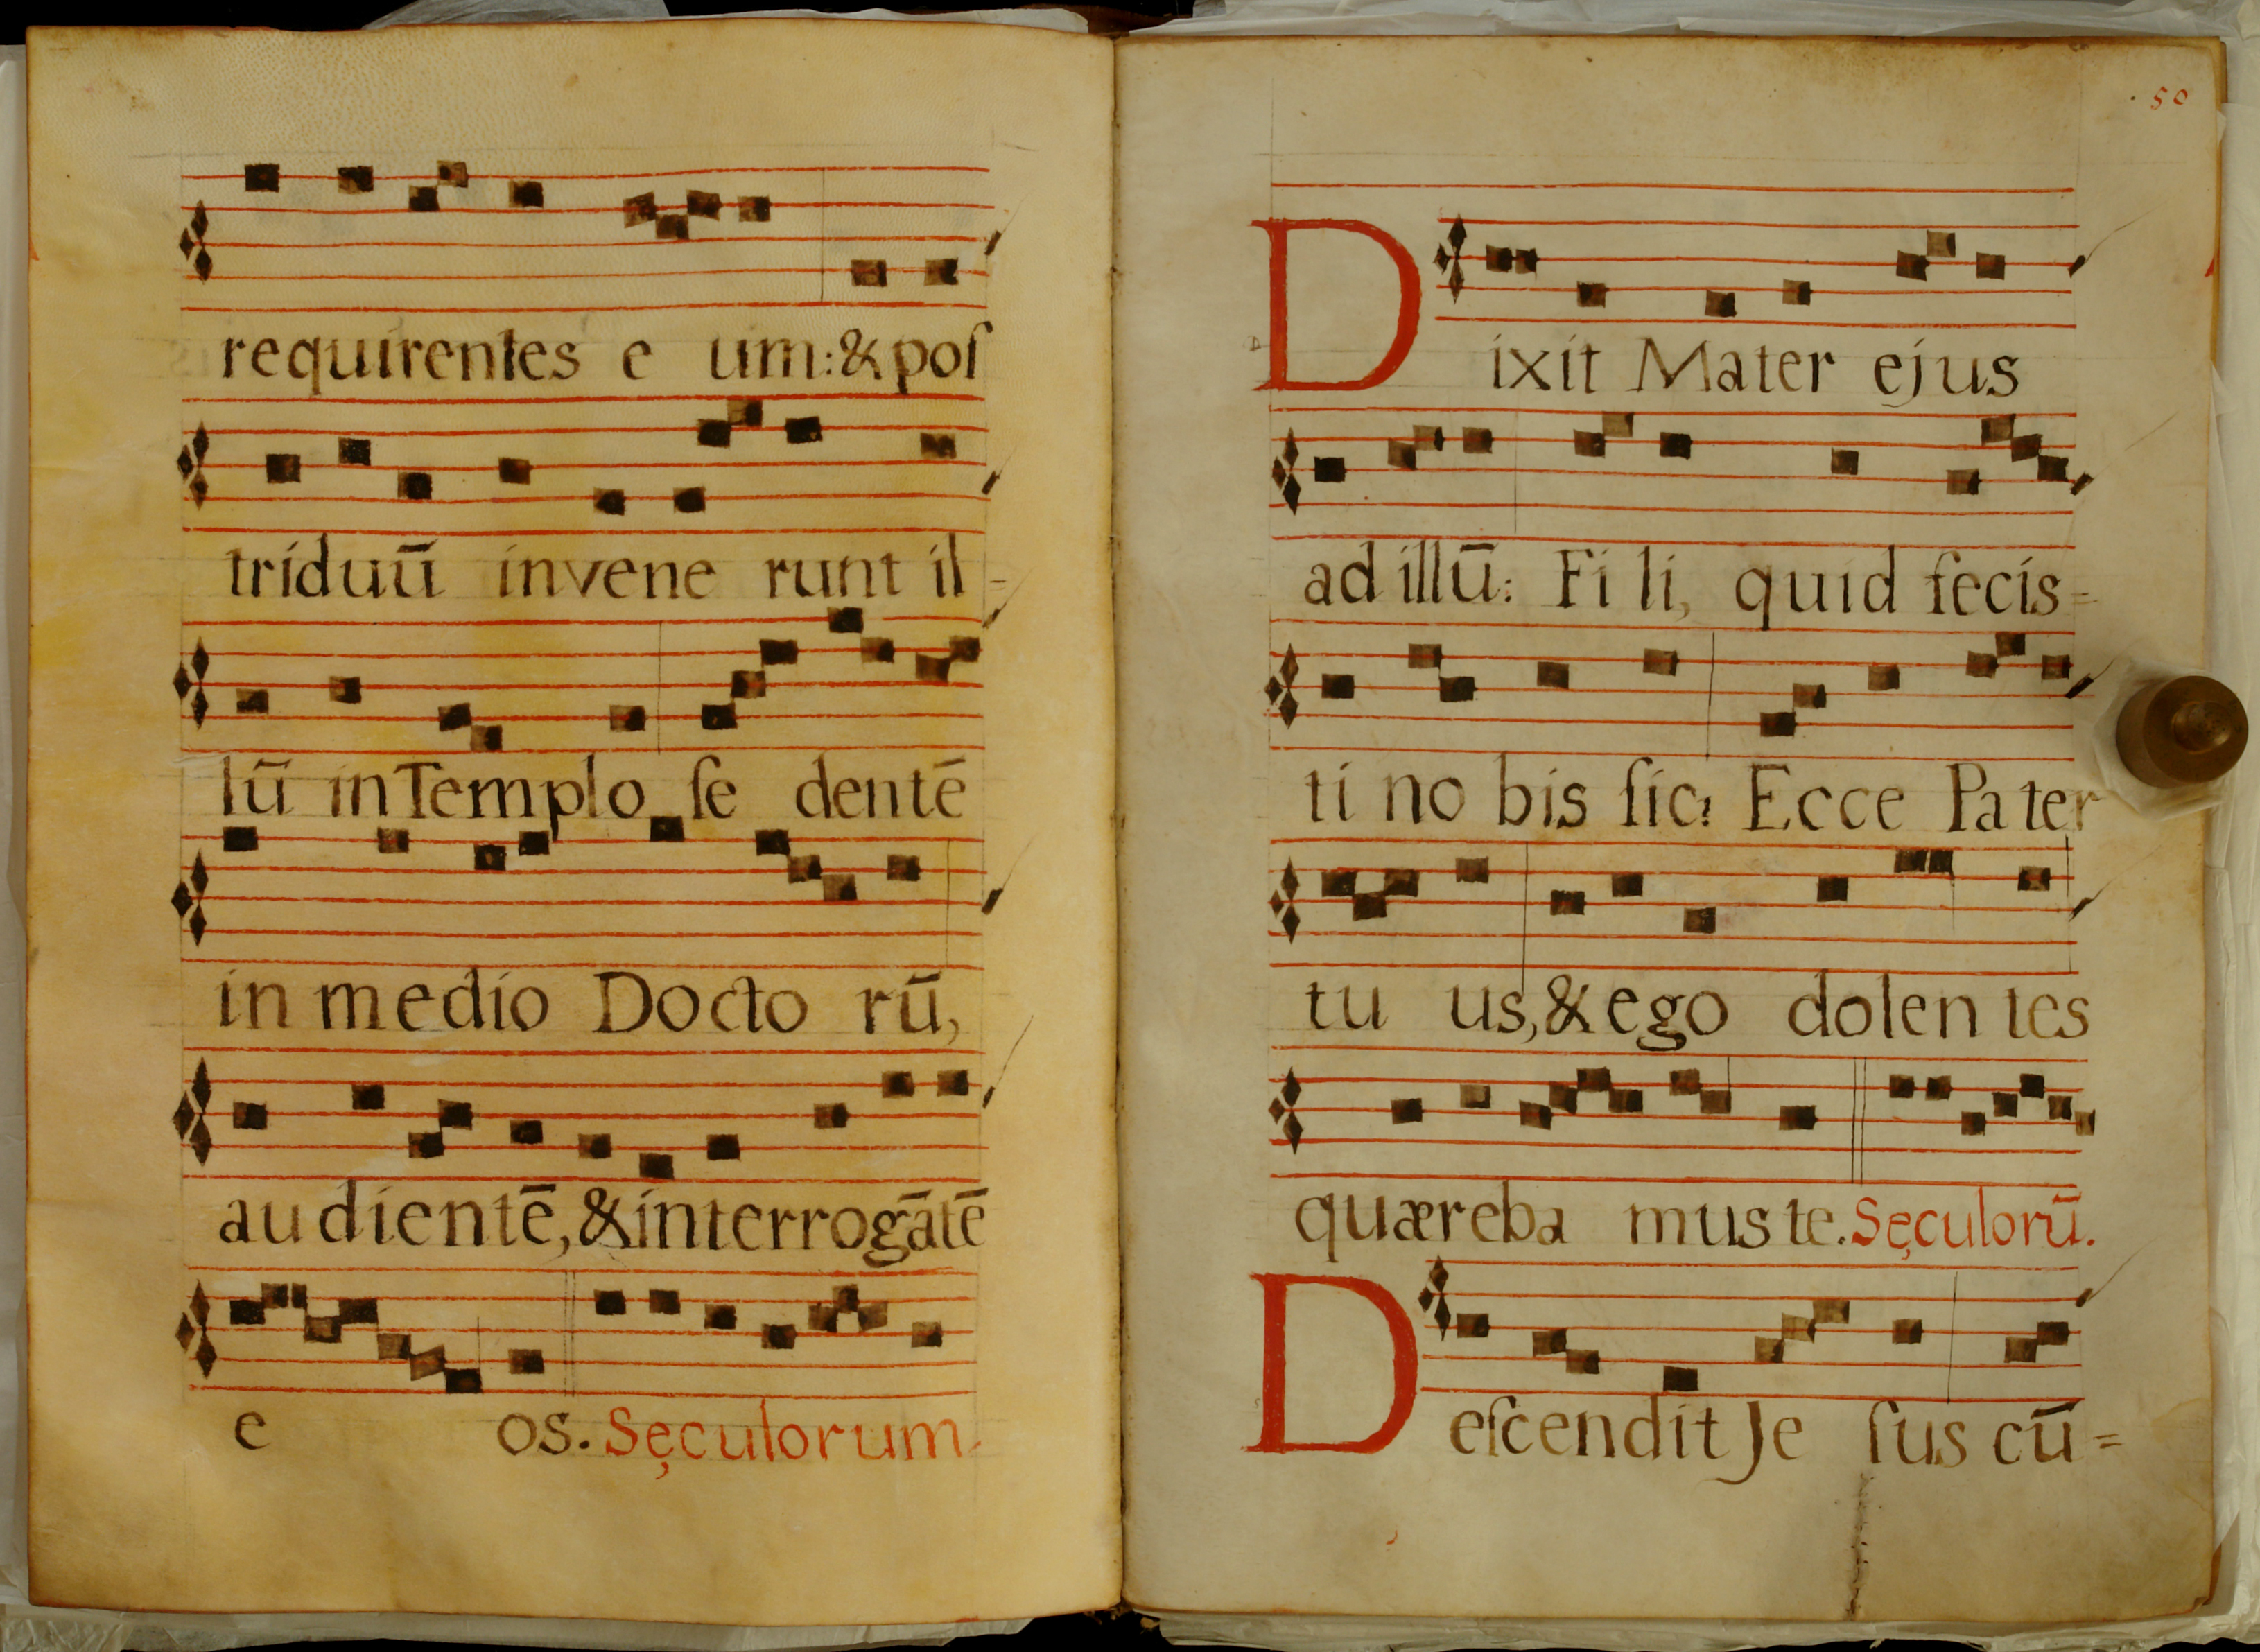 requirentes e um: & poſ
triduū invene runt il-
lū in Templo ſe dentē
in medio Docto rū,
audientē, & interrogātē
e os. Sęculorum.
50
Dixit Mater ejus
ad illū: Fi li, quid fecis=
ti no bis ſic? Ecce Pa ter
tu us, & ego dolen tes
quæreba mus te. Sęculorū.
Deſcendit Je ſus cū=